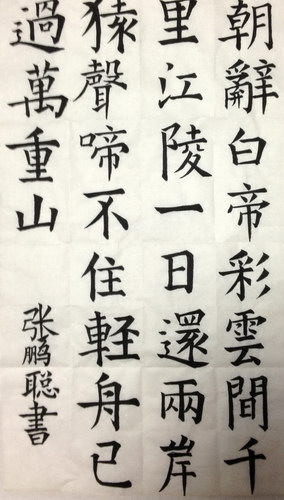 朝辭白帝彩雲間千
里江陵一日還兩岸
猿聲啼不住軽舟已
過萬重山
张鹏聪書